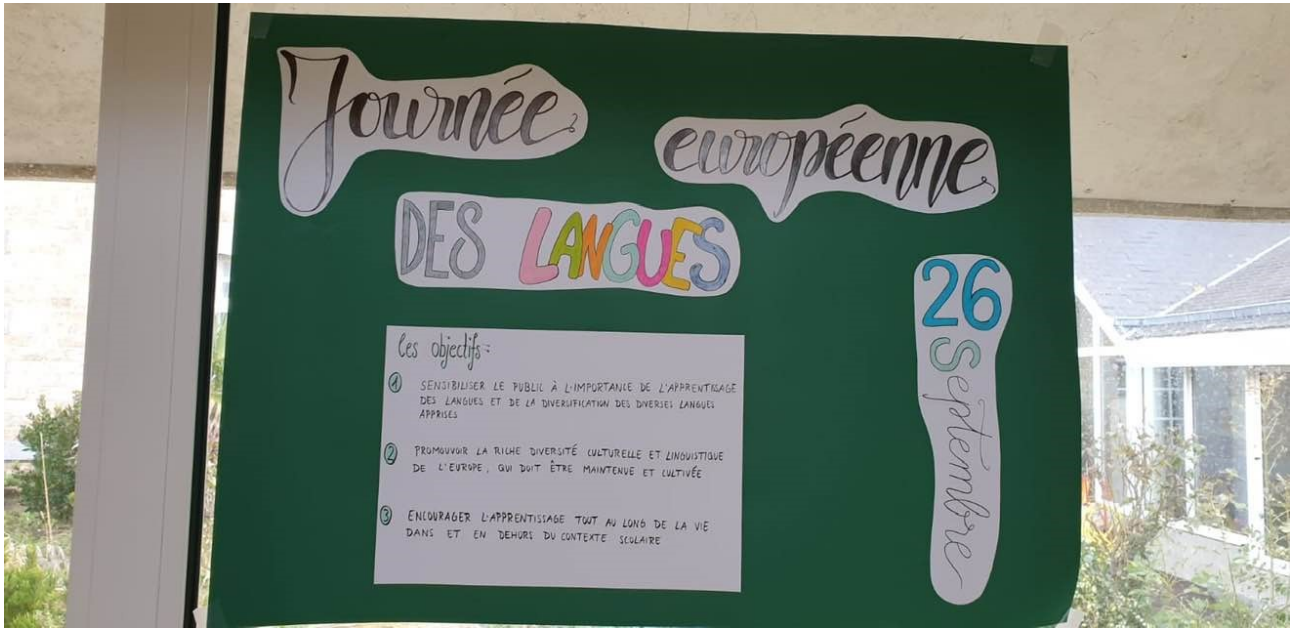 Journée
européenne
DES LANGUES
26
Septembre
Les objectifs :
1 SENSIBILISER LE PUBLIC À L'IMPORTANCE DE L'APPRENTISSAGE
DES LANGUES ET DE LA DIVERSIFICATION DES DIVERSES LANGUES
APPRISES
2 PROMOUVOIR LA RICHE DIVERSITÉ CULTURELLE ET LINGUISTIQUE
DE L'EUROPE, QUI DOIT ÊTRE MAINTENUE ET CULTIVÉE
3 ENCOURAGER L'APPRENTISSAGE TOUT AU LONG DE LA VIE
DANS ET EN DEHORS DU CONTEXTE SCOLAIRE